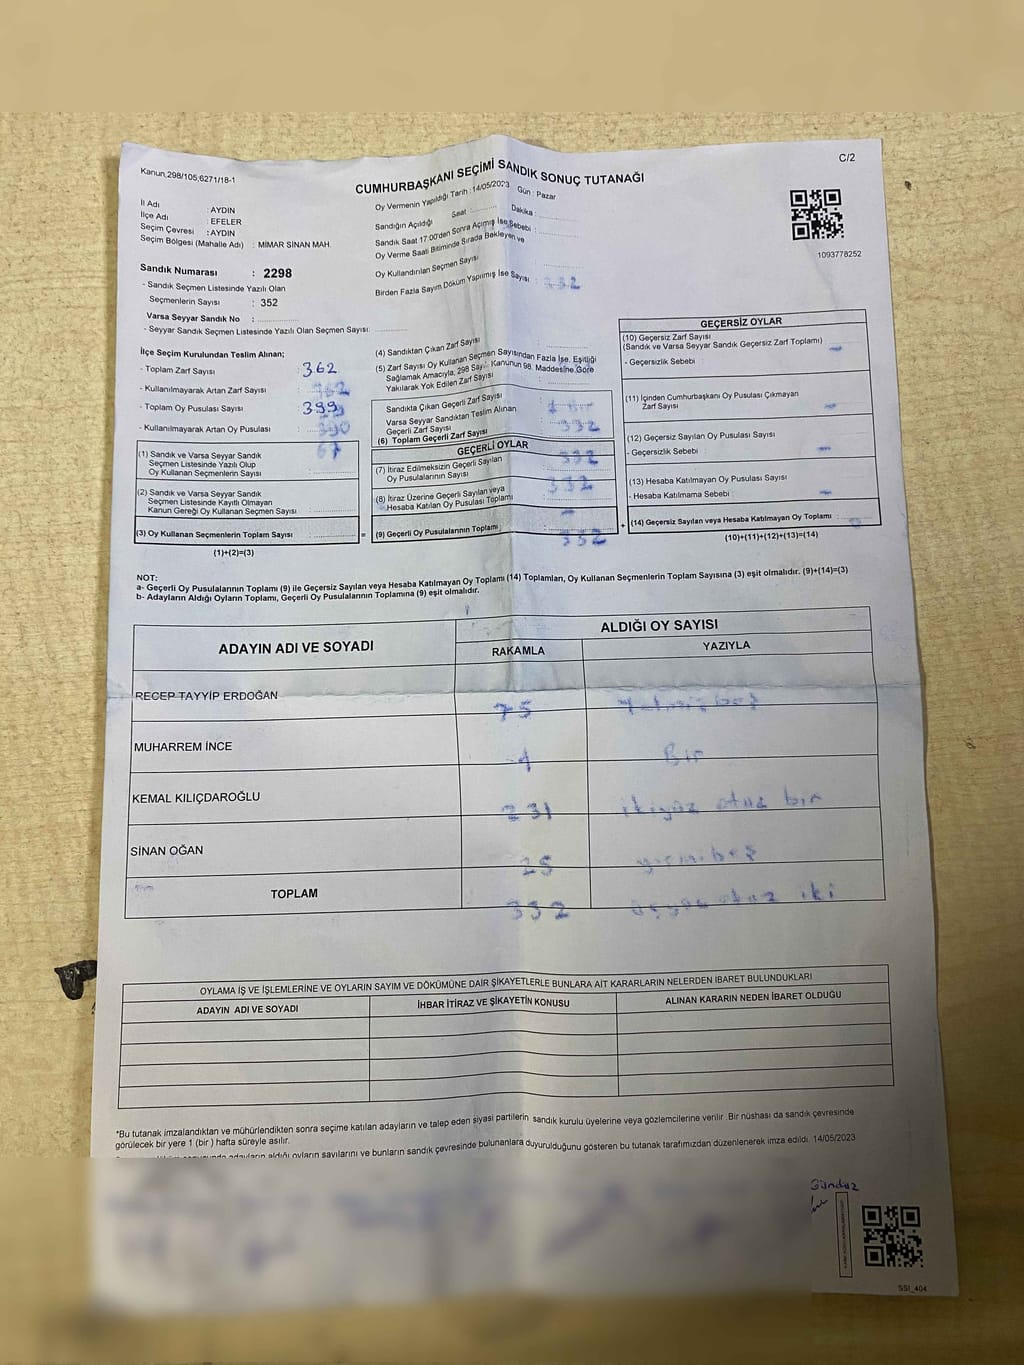 Kanun,298/105,6271/18-1
C/2
CUMHURBAŞKANI SEÇİMİ SANDIK SONUÇ TUTANAĞI
İl Adı : AYDIN
İlçe Adı : EFELER
Seçim Çevresi : AYDIN
Seçim Bölgesi (Mahalle Adı) : MİMAR SİNAN MAH.
Sandık Numarası : 2298
- Sandık Seçmen Listesinde Yazılı Olan
Seçmenlerin Sayısı : 352
Varsa Seyyar Sandık No :
- Seyyar Sandık Seçmen Listesinde Yazılı Olan Seçmen Sayısı:
Oy Vermenin Yapıldığı Tarih : 14/05/2023 Gün : Pazar
Sandığın Açıldığı Saat : Dakika :
Sandık Saat 17:00'den Sonra Açımış İse Sebebi :
Oy Verme Saati Bitiminde Sırada Bekleyen ve
Oy Kullandırılan Seçmen Sayısı
Birden Fazla Sayım Döküm Yapılmış İse Sayısı : 332
1093778252
İlçe Seçim Kurulundan Teslim Alınan;
- Toplam Zarf Sayısı : 362
- Kullanılmayarak Artan Zarf Sayısı :
- Toplam Oy Pusulası Sayısı : 399
- Kullanılmayarak Artan Oy Pusulası :
(1) Sandık ve Varsa Seyyar Sandık 67
Seçmen Listesinde Yazılı Olup
Oy Kullanan Seçmenlerin Sayısı :
(2) Sandık ve Varsa Seyyar Sandık
Seçmen Listesinde Kayıtlı Olmayan
Kanun Gereği Oy Kullanan Seçmen Sayısı :
(3) Oy Kullanan Seçmenlerin Toplam Sayısı : =
(1)+(2)=(3)
(4) Sandıktan Çıkan Zarf Sayısı
(5) Zarf Sayısı Oy Kullanan Seçmen Sayısından Fazla İse, Eşitliği
Sağlamak Amacıyla, 298 Sayılı Kanunun 98. Maddesine Göre
Yakılarak Yok Edilen Zarf Sayısı
Sandıkta Çıkan Geçerli Zarf Sayısı :
Varsa Seyyar Sandıktan Teslim Alınan
Geçerli Zarf Sayısı : 332
(6) Toplam Geçerli Zarf Sayısı
GEÇERLİ OYLAR
(7) İtiraz Edilmeksizin Geçerli Sayılan 332
Oy Pusulalarının Sayısı
(8) İtiraz Üzerine Geçerli Sayılan veya : 332
Hesaba Katılan Oy Pusulası Toplamı
(9) Geçerli Oy Pusulalarının Toplamı : 332
GEÇERSİZ OYLAR
(10) Geçersiz Zarf Sayısı
(Sandık ve Varsa Seyyar Sandık Geçersiz Zarf Toplamı) -
- Geçersizlik Sebebi :
(11) İçinden Cumhurbaşkanı Oy Pusulası Çıkmayan
Zarf Sayısı : -
(12) Geçersiz Sayılan Oy Pusulası Sayısı
- Geçersizlik Sebebi : -
(13) Hesaba Katılmayan Oy Pusulası Sayısı
- Hesaba Katılmama Sebebi : -
+ (14) Geçersiz Sayılan veya Hesaba Katılmayan Oy Toplamı :
(10)+(11)+(12)+(13)=(14)
NOT:
a- Geçerli Oy Pusulalarının Toplamı (9) ile Geçersiz Sayılan veya Hesaba Katılmayan Oy Toplamı (14) Toplamları, Oy Kullanan Seçmenlerin Toplam Sayısına (3) eşit olmalıdır. (9)+(14)=(3)
b- Adayların Aldığı Oyların Toplamı, Geçerli Oy Pusulalarının Toplamına (9) eşit olmalıdır.
ADAYIN ADI VE SOYADI
ALDIĞI OY SAYISI
RAKAMLA YAZIYLA
RECEP TAYYİP ERDOĞAN 75 Yetmiş beş
MUHARREM İNCE 1 Bir
KEMAL KILIÇDAROĞLU 231 ikiyüz otuz bir
SİNAN OĞAN 25 yirmi beş
TOPLAM 332 üçyüz otuz iki
OYLAMA İŞ VE İŞLEMLERİNE VE OYLARIN SAYIM VE DÖKÜMÜNE DAİR ŞİKAYETLERLE BUNLARA AİT KARARLARIN NELERDEN İBARET BULUNDUKLARI
ADAYIN ADI VE SOYADI İHBAR İTİRAZ VE ŞİKAYETİN KONUSU ALINAN KARARIN NEDEN İBARET OLDUĞU
*Bu tutanak imzalandıktan ve mühürlendikten sonra seçime katılan adayların ve talep eden siyasi partilerin sandık kurulu üyelerine veya gözlemcilerine verilir .Bir nüshası da sandık çevresinde
görülecek bir yere 1 (bir ) hafta süreyle asılır.
aldığı oyların sayılarını ve bunların sandık çevresinde bulunanlara duyurulduğunu gösteren bu tutanak tarafımızdan düzenlenerek imza edildi. 14/05/2023
Gündüz
SSI_404